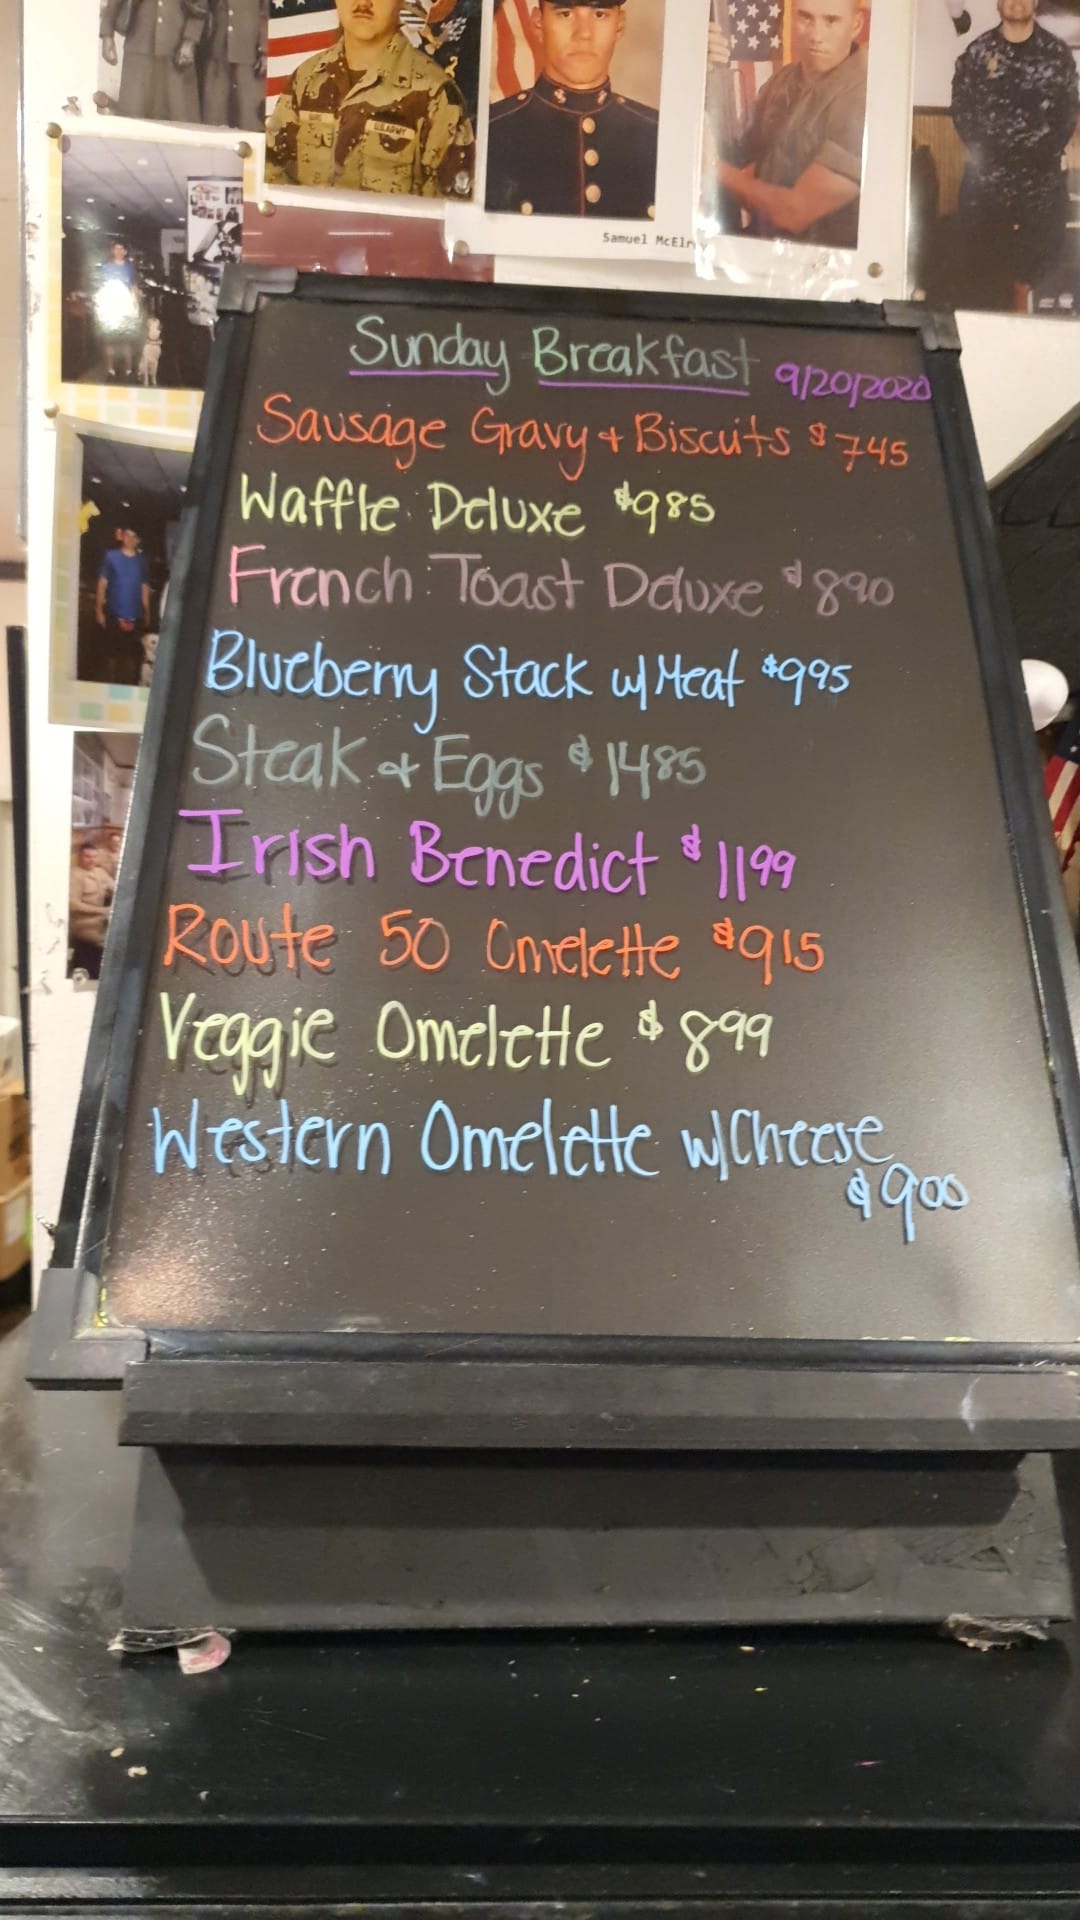 U.S. ARMY
Samuel McElr
Sunday Breakfast 9/20/2020
Sausage Gravy + Biscuits $745
Waffle Deluxe $985
French Toast Deluxe $890
Blueberry Stack w/Meat $995
Steak + Eggs $1485
Irish Benedict $1199
Route 50 Omelette $915
Veggie Omelette $899
Western Omelette w/Cheese
$900